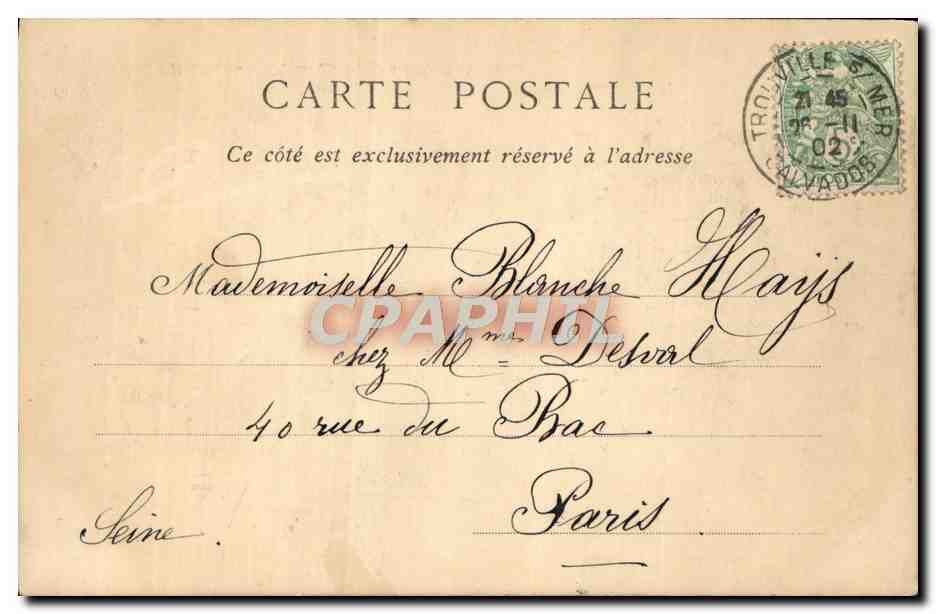 CARTE POSTALE
Ce côté est exclusivement réservé à l'adresse
TROUVILLE S/MER
21 45
26 -11
02
CALVADOS
Mademoiselle Blanche Hays
CPAPHIL
chez Mme Desval
40 rue du Bac
Paris
Seine.